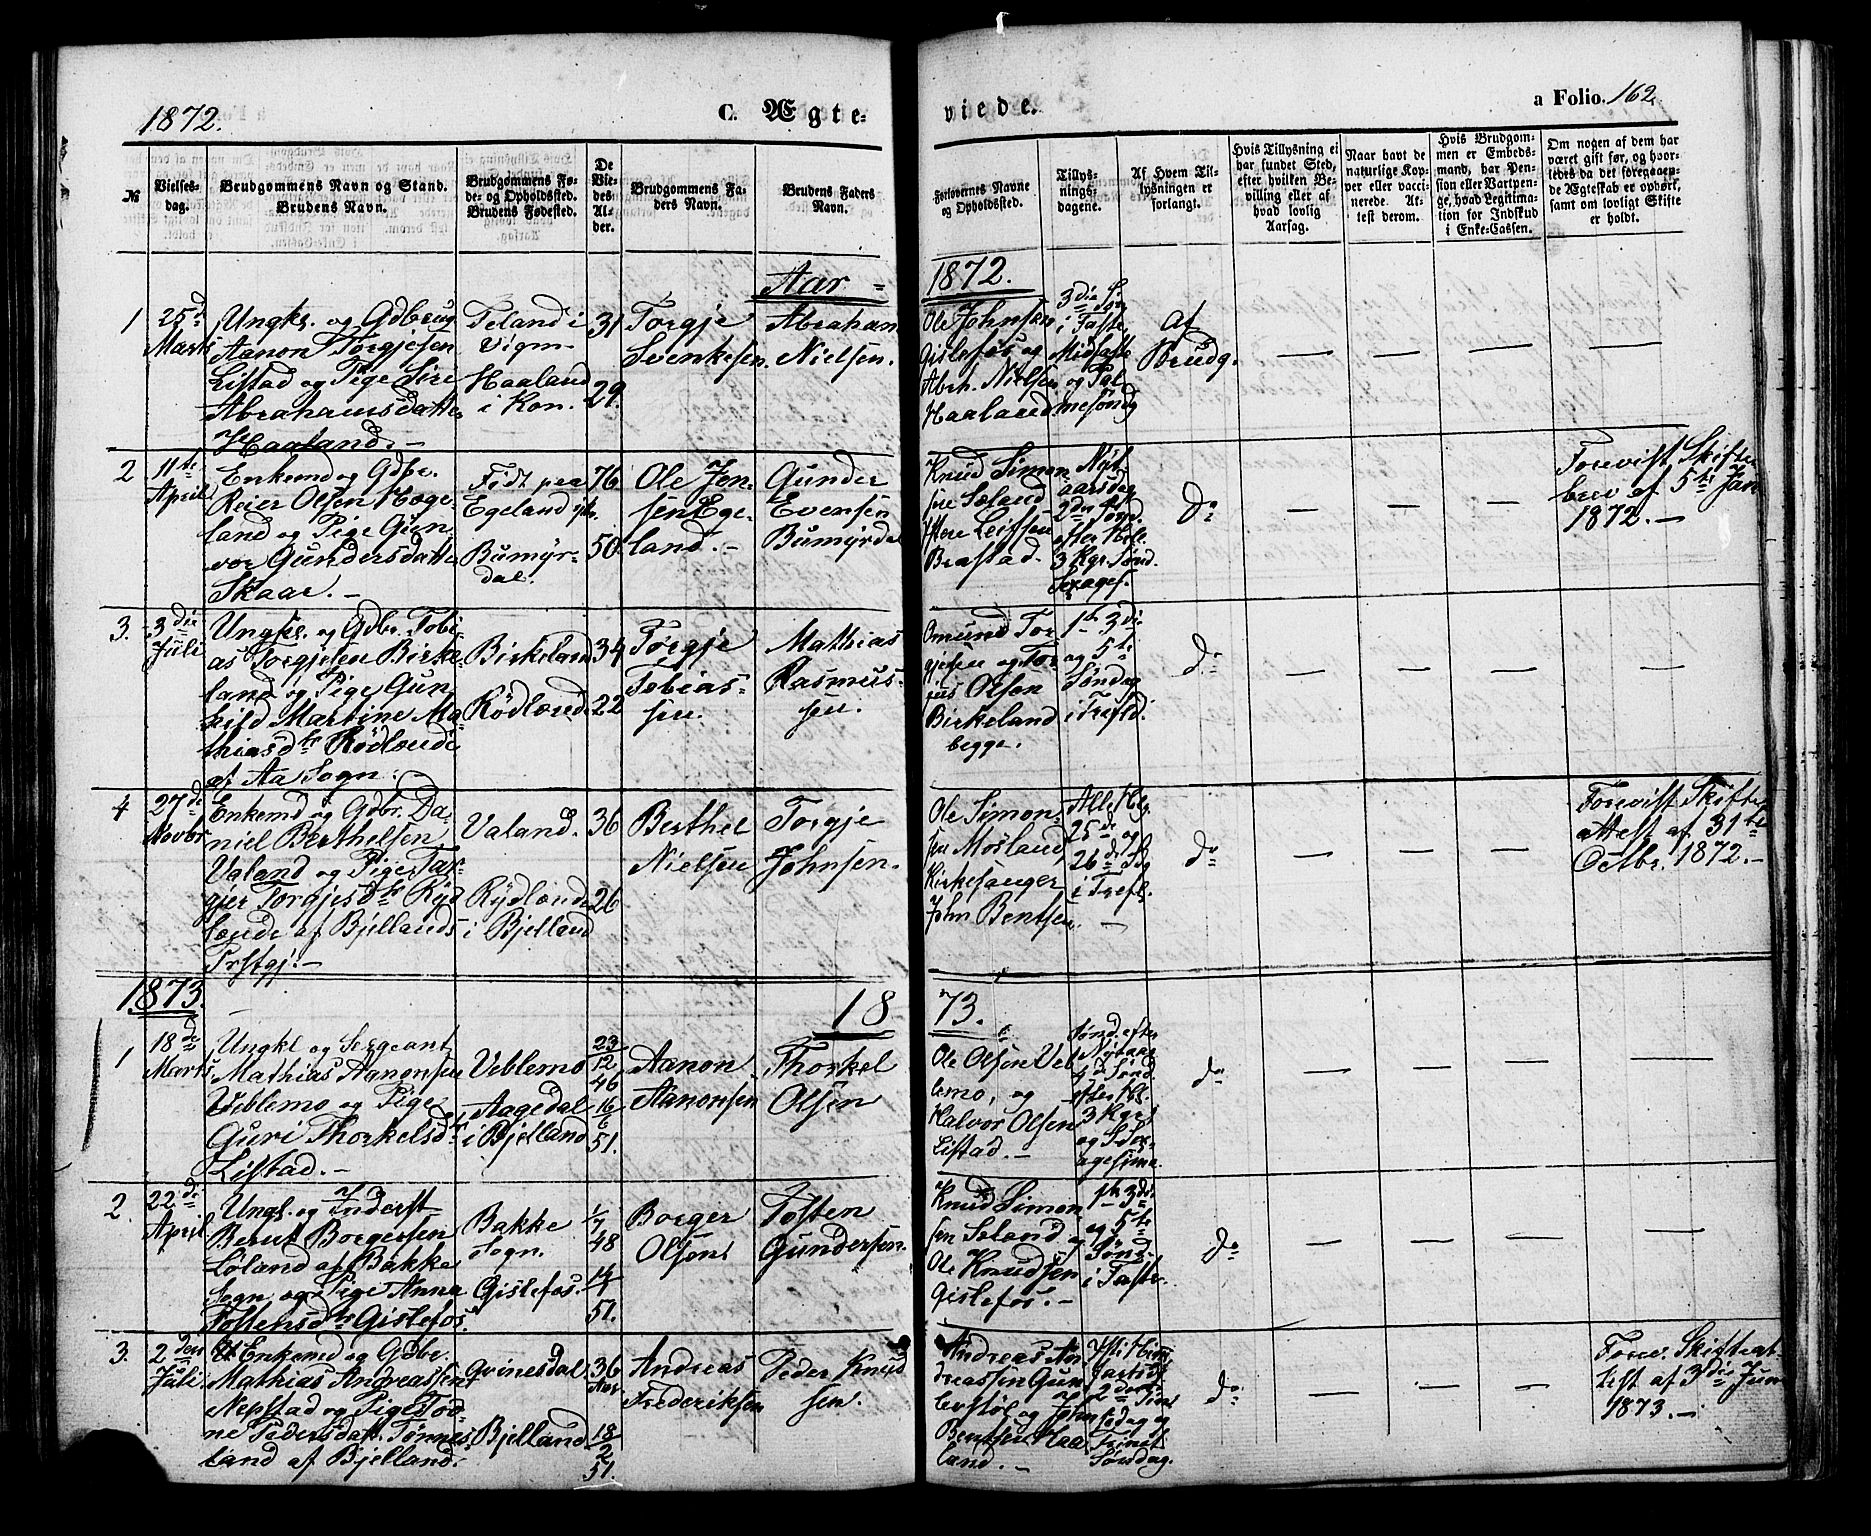 1872.
C. Ægte-
viede.
a Folio. 162.
№
Vielses-
dag.
Brudgommens Navn og Stand.
Brudens Navn.
Brudgommens Fø-
de- og Opholdssted.
Brudens Fødested.
De
Vie-
des
Al-
der.
Brudgommens Fa-
ders Navn.
Brudens Faders
Navn.
Forlovernes Navne
og Opholdssted.
Tillys-
nings-
dagene.
Af Hvem Til-
lysningen er
forlangt.
Hvis Tillysning ei
har fundet Sted,
efter hvilken Be-
villing eller af
hvad lovlig
Aarsag.
Naar havt de
naturlige Kop-
per eller vacci-
nerede. At-
test derom.
Hvis Brudgom-
men er Embeds-
mand, har Pen-
sion eller Vartpen-
ge, hvad Legitima-
tion for Indskud
i Enke-Cassen.
Om nogen af dem har
været gift før, og hvor-
ledes da det foregaaen-
de Ægteskab er ophørt,
samt om lovligt Skifte
er holdt.
Aar -
1872.
1
25de
Marts
Ungkl. og Gdbrug.
Aanon Torgjesen
Listad og Pige Sire
Abrahamsdatter
Haaland. -
Teland i
Vigm-
Haaland
i Kon.
31
29.
Torgje
Svenkesen.
Abraham
Nielsen.
Ole Johnsen
Gislefos og
Abrh. Nielsen
Haaland
3die S.
i Faste,
Midfaste
og Pal-
mesøndg
af
Brudg.
2
11te
April
Enkemd og Gdbr.
Reier Olsen Hæge-
land og Pige Gun-
vor Gundersdatter
Skaar. -
Født paa
Egeland
Bumyr-
dal.
76
50.
Ole Jen-
sen Ege-
land. -
Gunder
Evensen
Bumyrdal
Knud Simon-
sen Søland
Leifsen
Brastad.
Nyt-
aarsdag
2den Sønd.
efter Hel.
3 Kgr. Sønd.
Sexages.
Do
Forevist Skifte-
brev af 5te Jan
1872. -
3.
3die
Juli
Ungkl. og Gdbr. Tobi-
as Torgjesen Birke-
land og Pige Gun-
hild Martine Ma-
thiasdtr Rødlande
af Aa Sogn. -
Birkeland
Rødlænde
34
22
Torgje
Tobias-
sen.
Mathias
Rasmus-
sen.
Omund Tor-
gjesen og Tor-
jus Olsen
Birkeland
begge.
1ste 3die
og 5te
Søndag
i Trefld.
do
4
27de
Novbr
Enkemd og Gdbr. Da-
niel Berthelsen
Valand og Pige Tar-
gjer Torgjesdtr Ryd-
lænde af Bjellands
Prstgj. -
Valand.
Rydlænde
i Bjelland
36
26
Berthel
Nielsen
Torgje
Johnsen.
Ole Simon-
sen Mosland,
Kirkesanger
John Bentsen.
Alle Hlg.
25de og
26de Sdg
i Trefl.
-
do
Forevist Skifte-
attest af 31te
Octbr. 1872. -
1873.
18
73.
1
18de
Marts
Ungkl og Sergeant
Mathias Aanonsen
Veblemo og Pige
Guri Thorkelsdtr
Listad. -
Veblemo
Aagedal
i Bjelland
23/12
46
16/6
51.
Aanon
Aanonsen
Thorkel
Olsen
Ole Olsen Veb-
lemo, og
Halvor Olsen
Listad. -
Sønd. efter
Nytaar
Sønd.
efter Hl.
3 Kgr
og S. Sex-
agesima.
do
2.
22de
April
Ungk. og Inderst
Bernt Borgersen
Løland af Bakke
Sogn og Pige Anna
Tostensdtr Gislefos.
Bakke
Sogn.
Gislefos.
1/7
48
14/1
51.
Borger
Olsen
Tosten
Gundersen.
Knud Simon-
sen Søland og
Ole Knudsen
Gislefos. -
1ste 3die
og 5te
Sønd.
i Faste.
do
3.
2den
Juli
Enkemd og Gdbr.
Mathias Andreassen
Nepstad og Pige Tor-
ne Pedersdatt. Tønnes-
land af Bjelland.
Qvinesdal
Bjelland
36
Aar
18/2
51.
Andreas
Frederiksen
Peder Knud-
sen.
Andreas An-
dreassen Gun-
lerstøl og John
Bentsen Haa-
land. -
fartsdg
2den
Pints
dag og
Trinit
Søndag.
do
Forev. Skifteat-
test af 3die Juni
1873. -